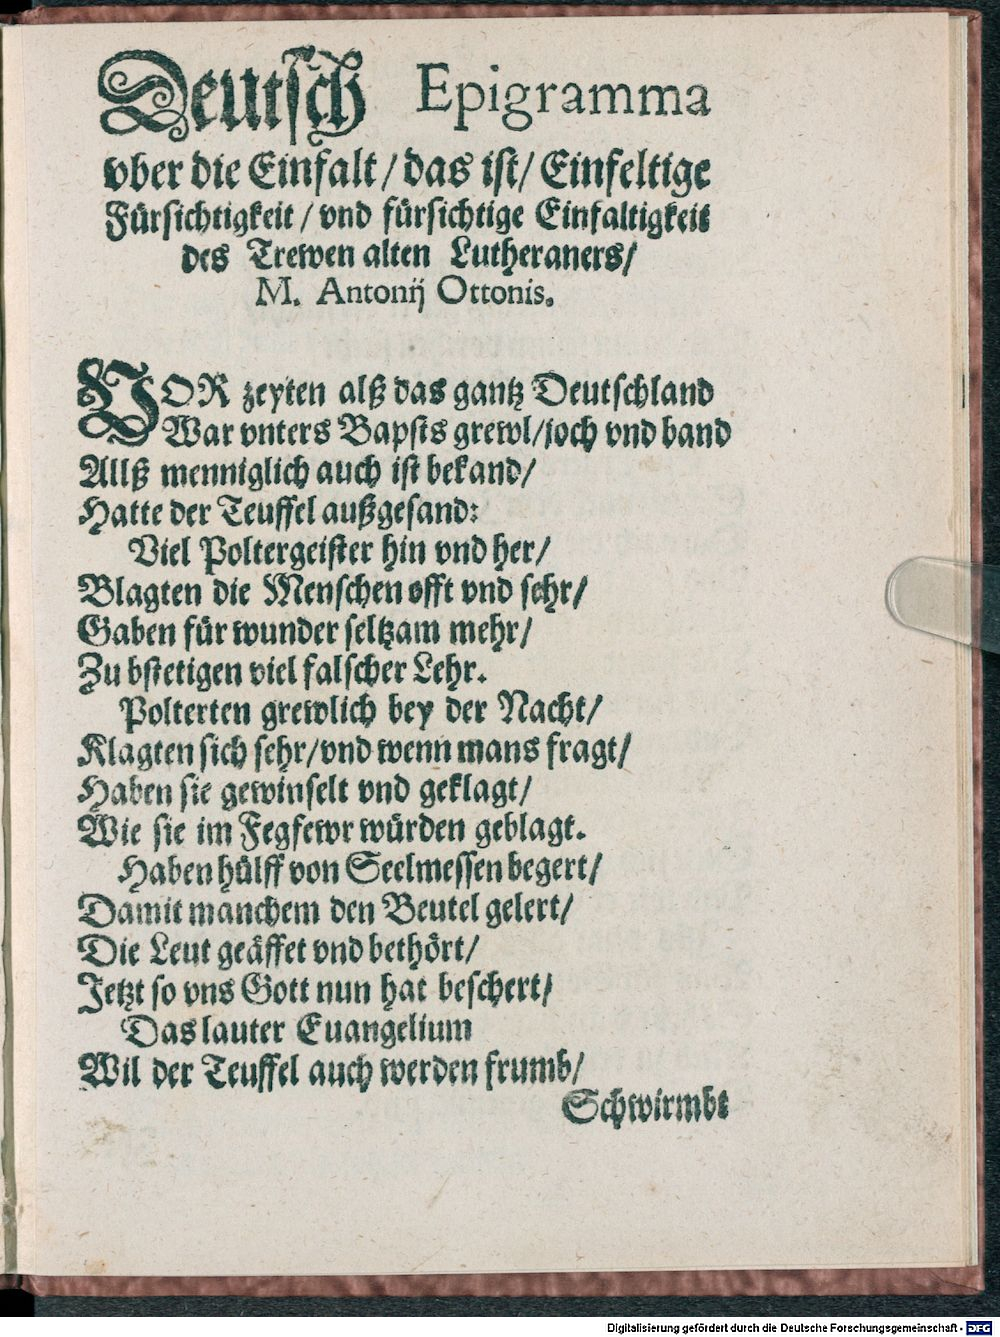 Deutsch Epigramma
vber die Einfalt/das ist/ Einfeltige
Fürsichtigkeit/vnd fürsichtige Einfaltigkeit
des Trewen alten Lutheraners/
M. Antonij Ottonis.
VOR zeyten alß das gantz Deutschland
War vnters Bapsts grewl/joch vnd band
Allß menniglich auch ist bekand/
Hatte der Teuffel außgesand:
Viel Poltergeister hin vnd her/
Blagten die Menschen offt vnd sehr/
Gaben für wunder seltzam mehr/
Zu bstetigen viel falscher Lehr.
Polterten grewlich bey der Nacht/
Klagten sich sehr/vnd wenn mans fragt/
Haben sie gewinselt vnd geklagt/
Wie sie im Fegfewr würden geblagt.
Haben hülff von Seelmessen begert/
Damit manchem den Beutel gelert/
Die Leut geäffet vnd bethört/
Jetzt so vns Gott nun hat beschert/
Das lauter Euangelium
Wil der Teuffel auch werden frumb/
Schwirmbt
Digitalisierung gefördert durch die Deutsche Forschungsgemeinschaft - DFG